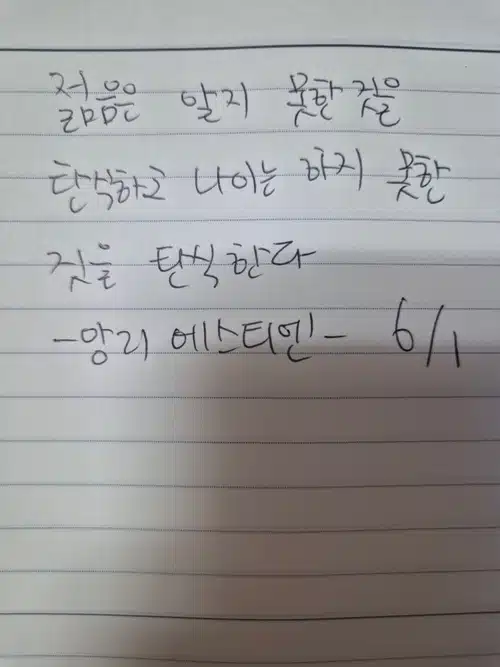 젊음은 알지 못한 것을
탄식하고 나이는 하지 못한
것을 탄식한다
-앙리 에스티엔- 6/1